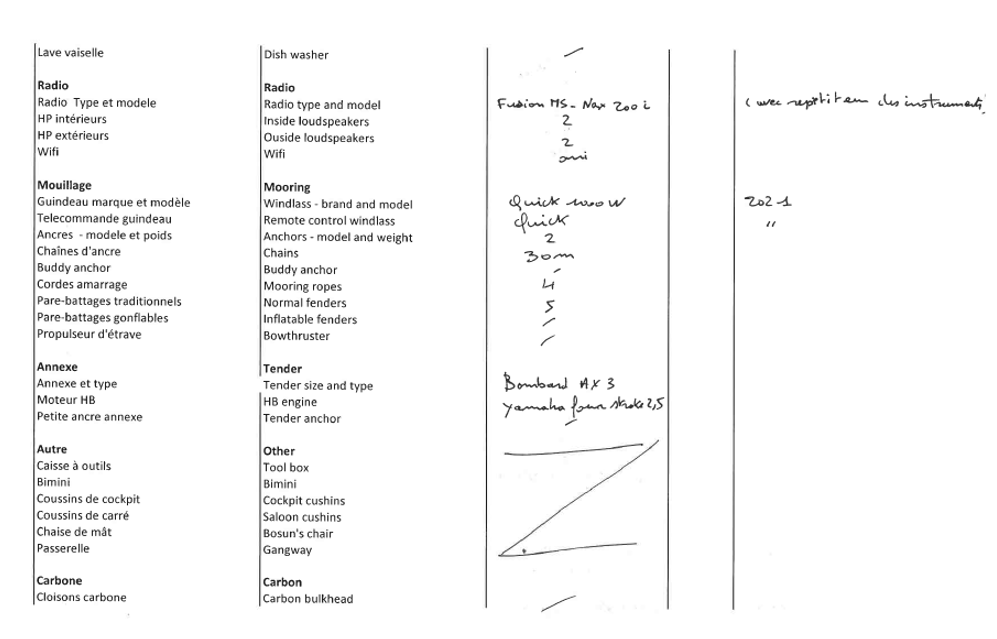 Lave vaiselle Dish washer /
Radio Radio
Radio Type et modele Radio type and model Fusion MS- Nax 200 i ( avec repetiteur des instruments)
HP intérieurs Inside loudspeakers 2
HP extérieurs Ouside loudspeakers 2
Wifi Wifi
Mouillage Mooring
Guindeau marque et modèle Windlass - brand and model Quick 1000 W 2021
Telecommande guindeau Remote control windlass Quick "
Ancres - modele et poids Anchors - model and weight 2
Chaînes d'ancre Chains 30m
Buddy anchor Buddy anchor /
Cordes amarrage Mooring ropes 4
Pare-battages traditionnels Normal fenders 5
Pare-battages gonflables Inflatable fenders /
Propulseur d'étrave Bowthruster /
Annexe Tender
Annexe et type Tender size and type Bombard AX 3
Moteur HB HB engine Yamaha four stroke 2,5
Petite ancre annexe Tender anchor /
Autre Other
Caisse à outils Tool box
Bimini Bimini
Coussins de cockpit Cockpit cushins
Coussins de carré Saloon cushins
Chaise de mât Bosun's chair
Passerelle Gangway
Carbone Carbon
Cloisons carbone Carbon bulkhead /